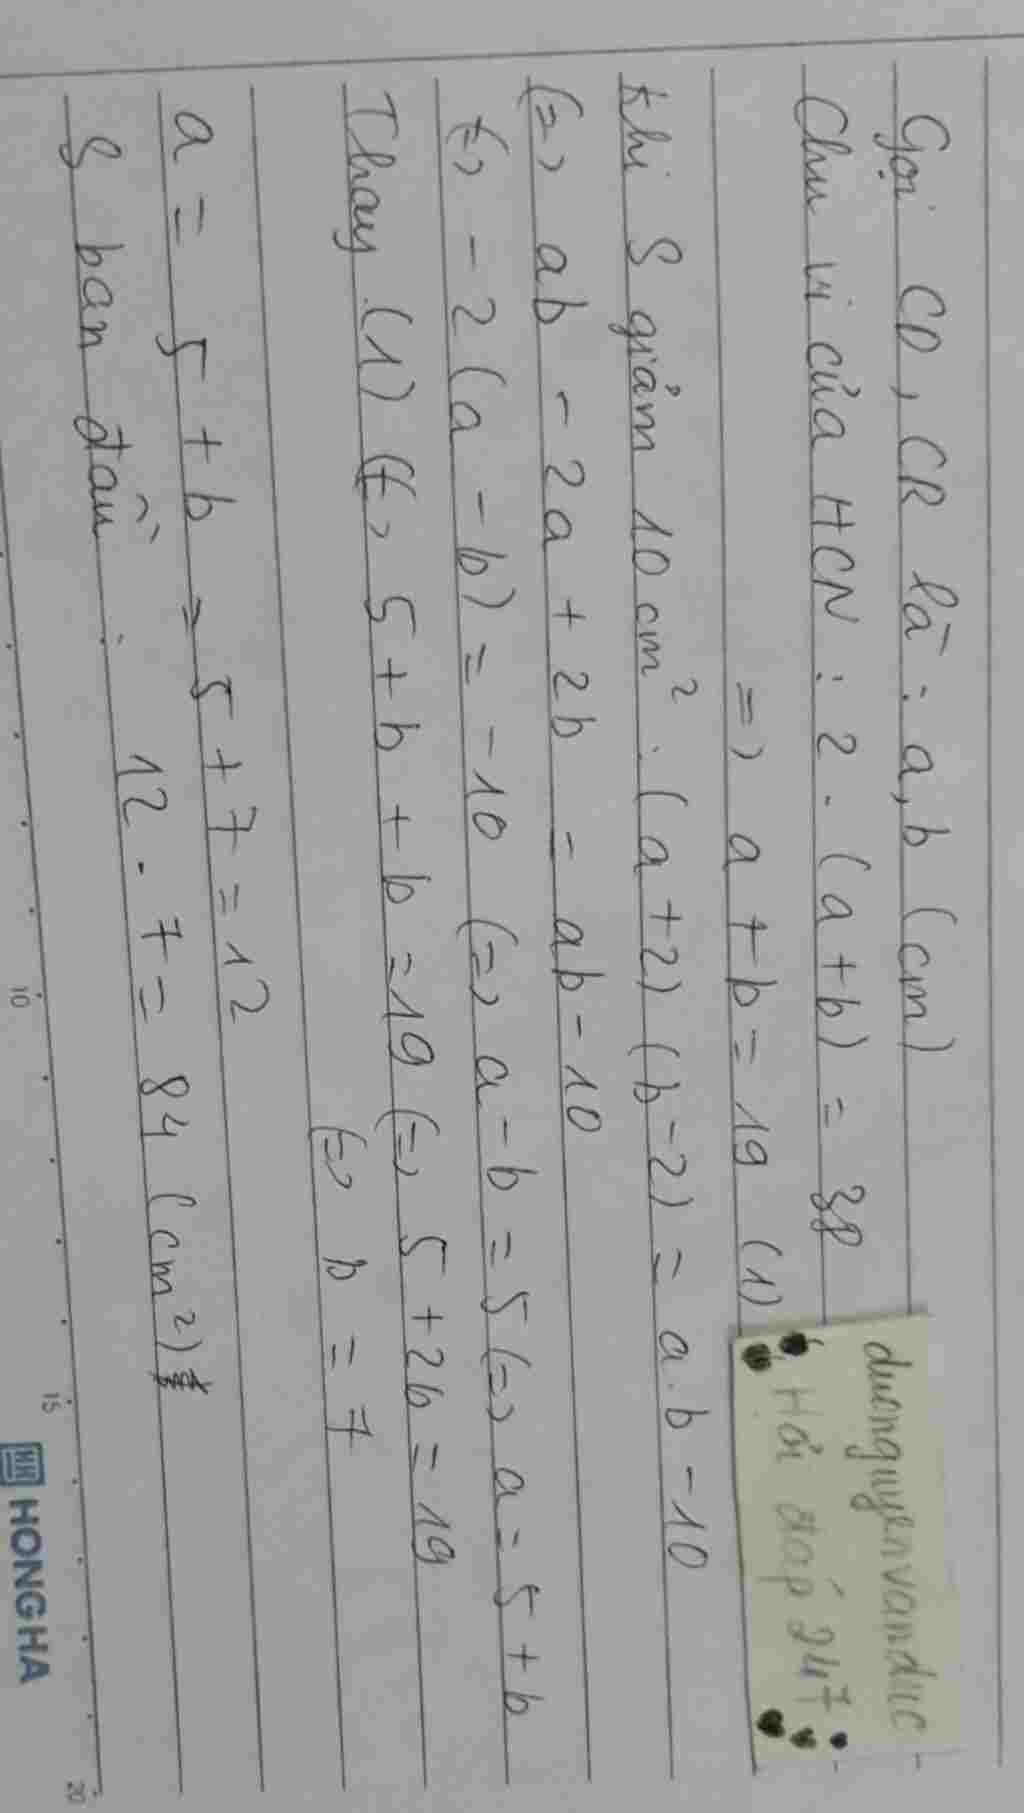 Gọi CD, CR là : a, b (cm)
Chu vi của HCN : 2 . (a+b) = 38
=> a + b = 19 (1)
Khi S giảm 10 cm² : (a+2) (b-2) = a.b - 10
(=) ab - 2a + 2b = ab - 10
(=) - 2 (a - b) = - 10 (=) a - b = 5 (=) a = 5 + b
Thay (1) (=) 5 + b + b = 19 (=) 5 + 2b = 19
(=) b = 7
a = 5 + b = 5 + 7 = 12
S ban đầu : 12 . 7 = 84 (cm²)
duonguyenvanduc
Hỏi đáp 247
10
15
20
HH HONG HA